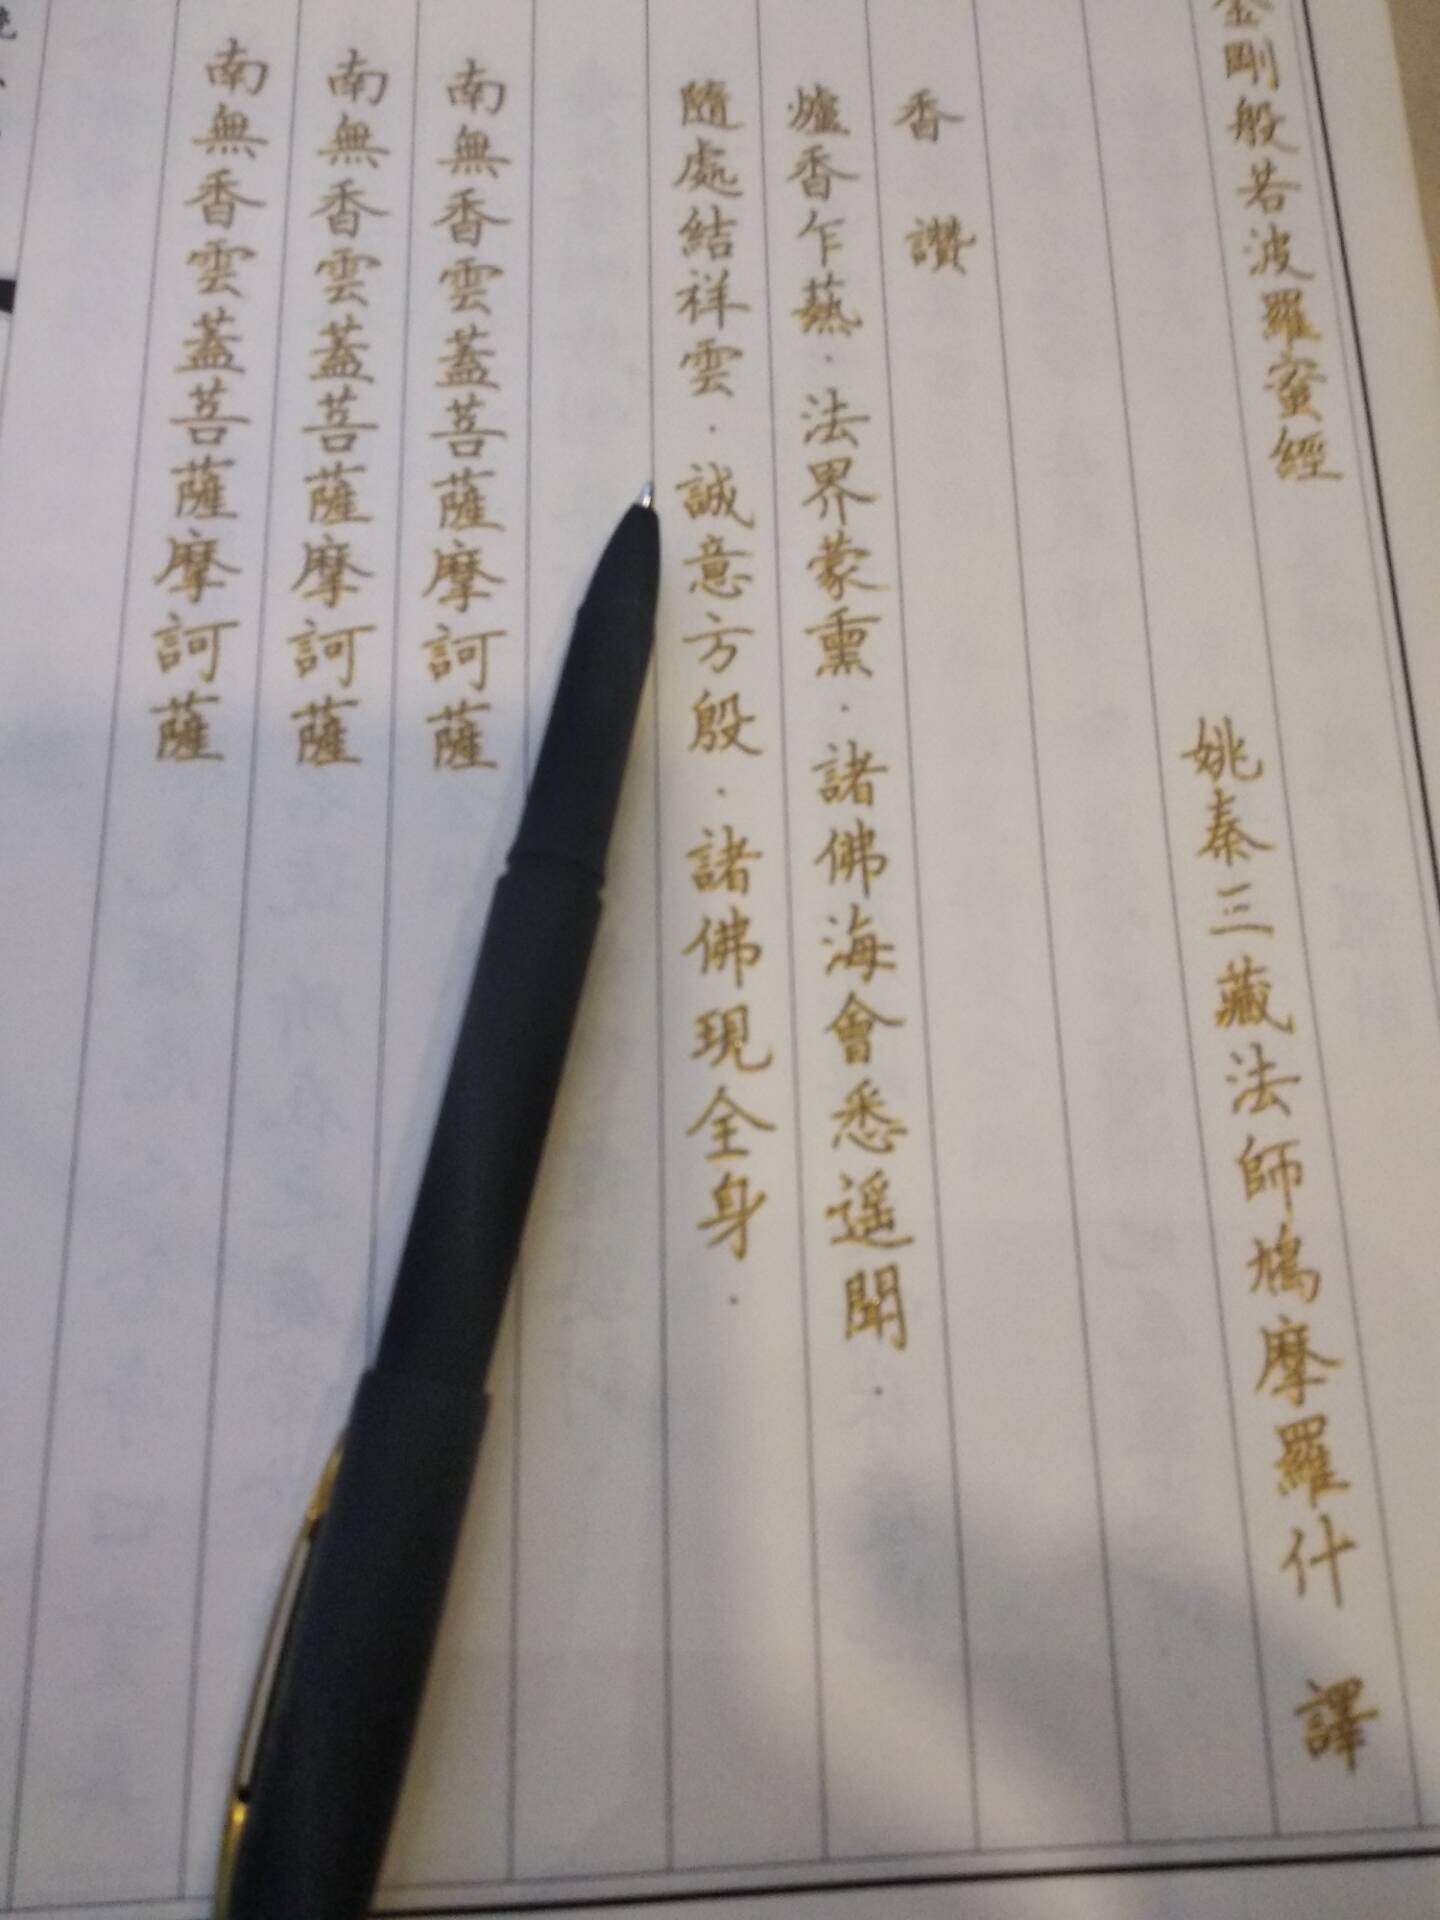 金剛般若波羅蜜經
姚秦三藏法師鳩摩羅什 譯
香 讚
爐香乍爇．法界蒙熏．諸佛海會悉遥聞．
隨處結祥雲．誠意方殷．諸佛現全身．
南無香雲蓋菩薩摩訶薩
南無香雲蓋菩薩摩訶薩
南無香雲蓋菩薩摩訶薩